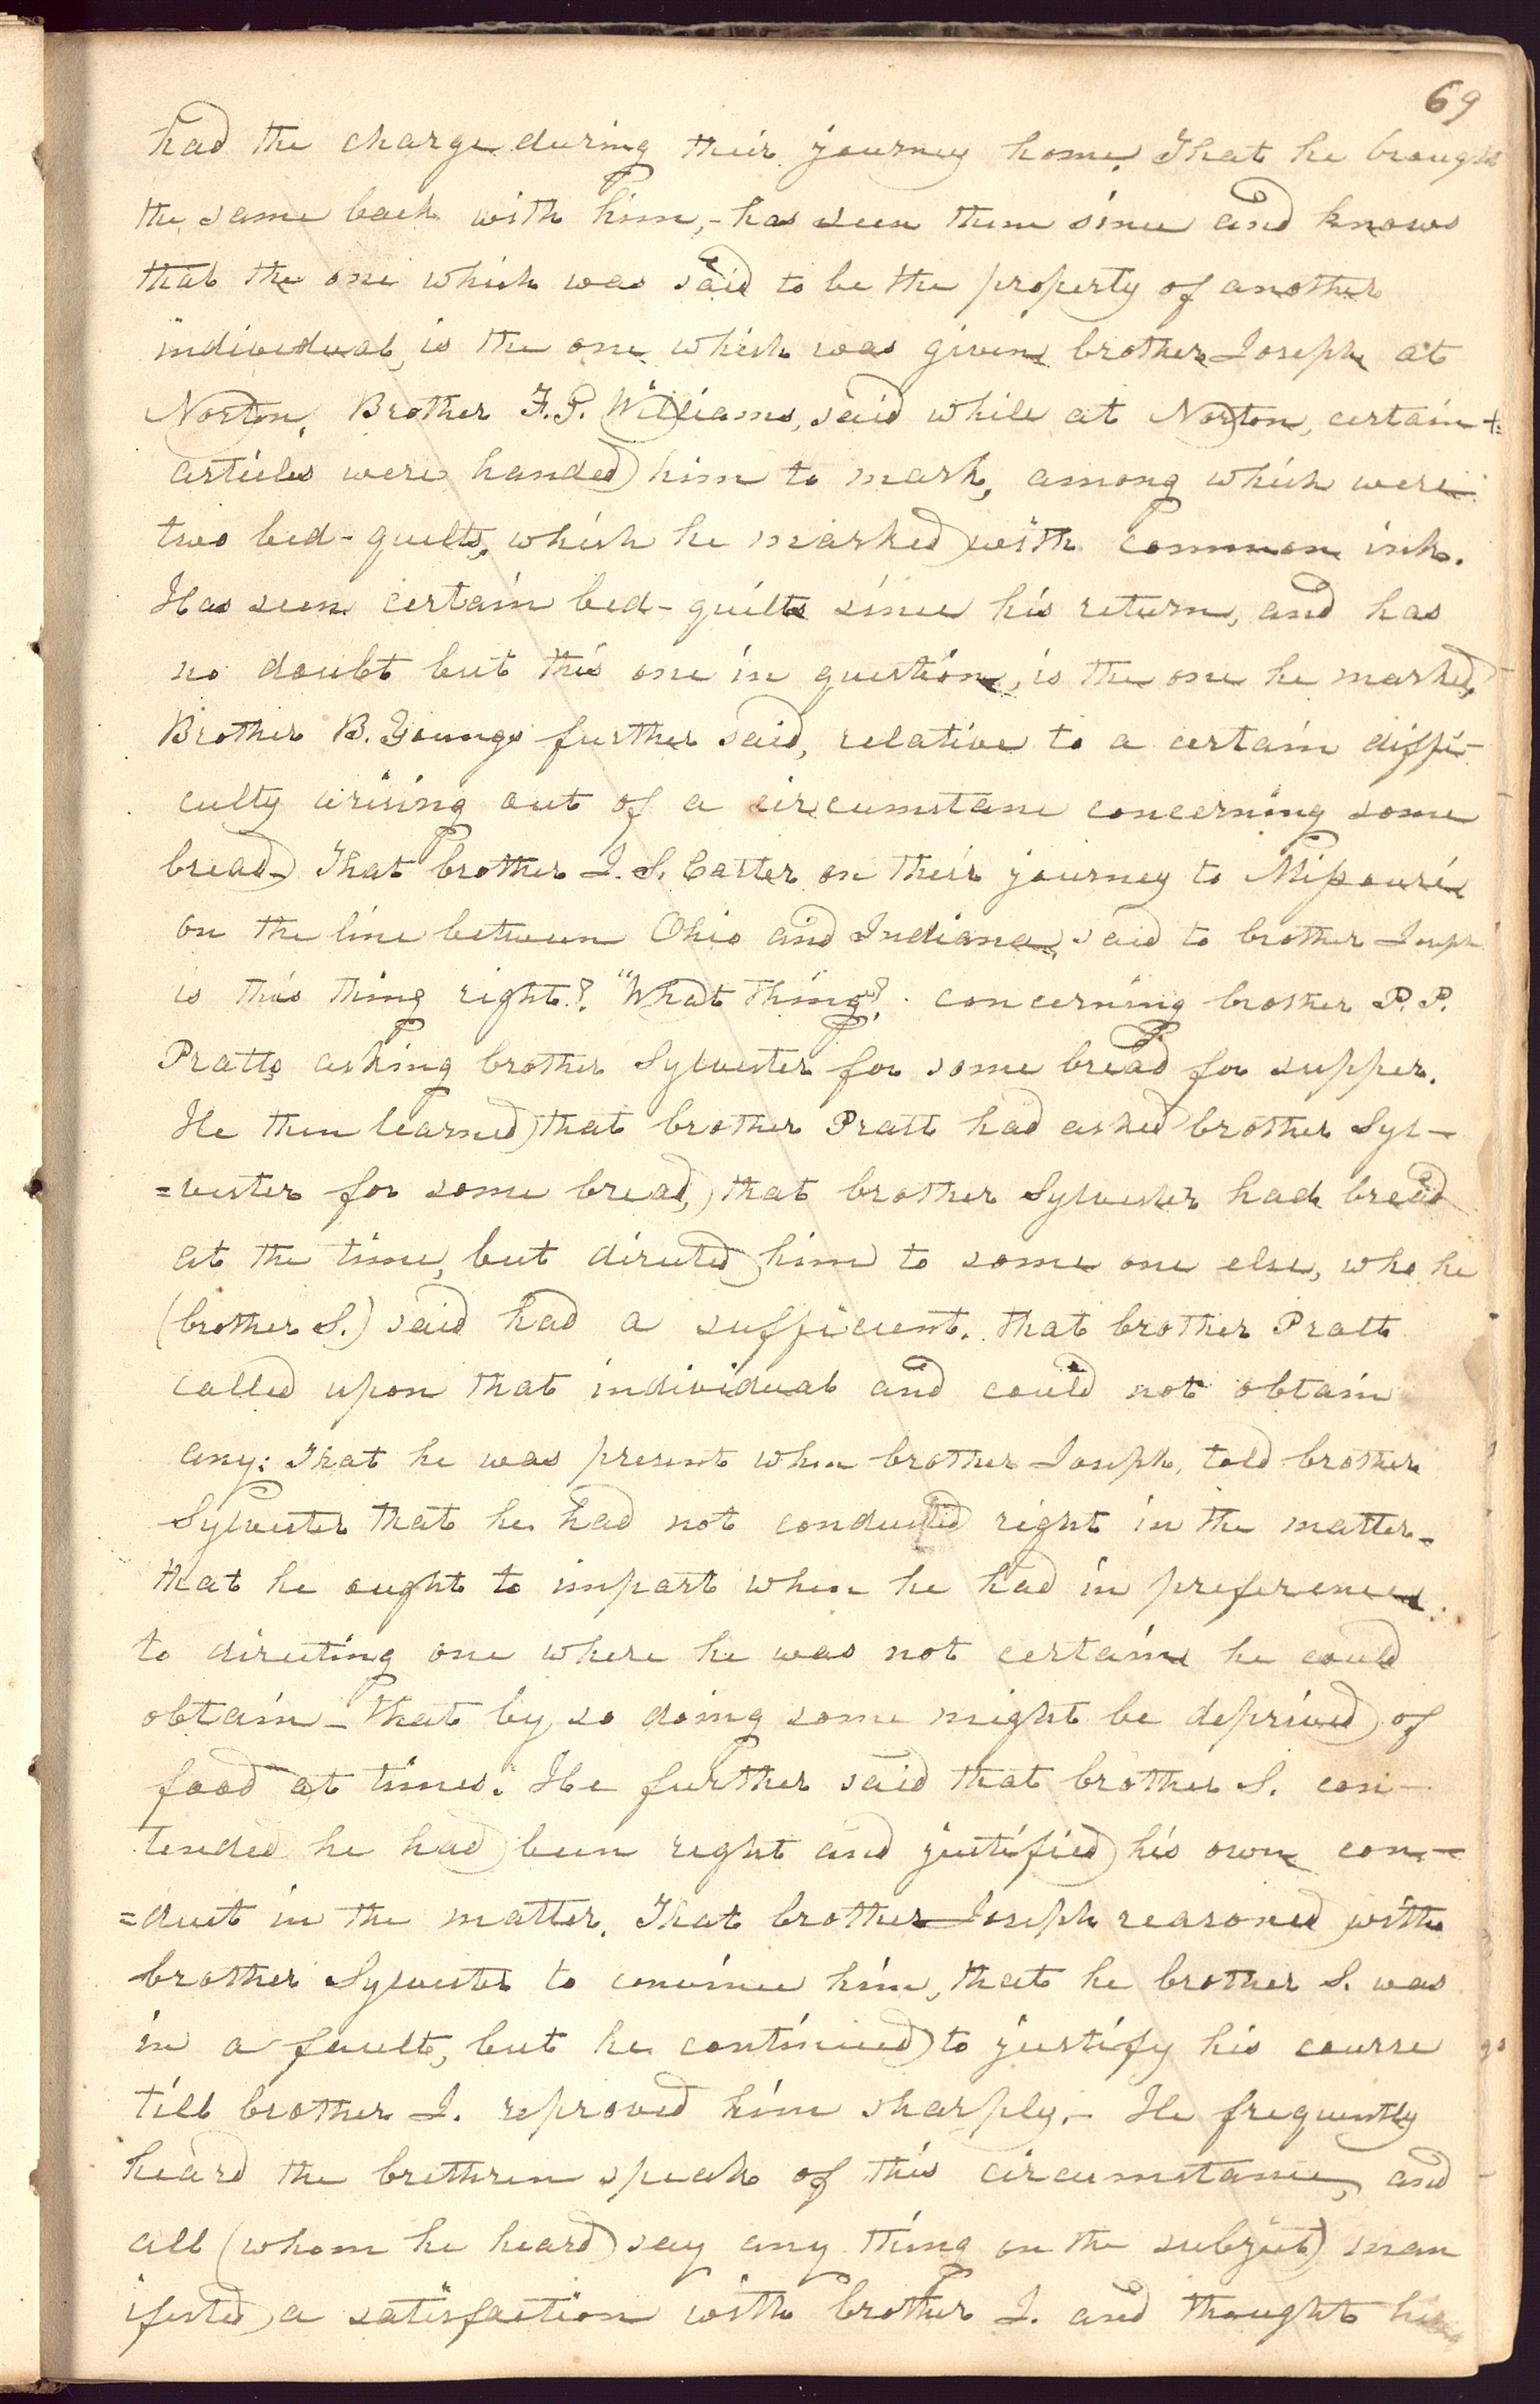 69
had the charge during their journey home. That he brought
the same back with him,- has seen them since and knows
that the one which was said to be the property of another
individual, is the one which was given brother Joseph at
Norton. Brother F. G. Williams, said while at Norton, certain
articles were handed him to mark, among which were
two bed-quilts, which he marked with common ink.
Has seen certain bed-quilts since his return, and has
no doubt but this one in question, is the one he marked,
Brother B. Young further said, relative to a certain diffi-
culty arising out of a circumstance concerning some
bread- That brother J. S. Carter on their journey to Missouri
on the line between Ohio and Indiana, said to brother Joseph
is this thing right? "What thing"? concerning brother P. P.
Pratts asking brother Sylvester for some bread for supper.
He then learned that brother Pratt had asked brother Syl-
=vester for some bread, that brother Sylvester had bread
at the time, but directed him to some one else, who he
(brother S.) said had a sufficient. that brother Pratt
called upon that individual and could not obtain
any: That he was present when brother Joseph, told brother
Sylvester that he had not conducted right in the matter-
that he ought to impart when he had in preference
to directing one where he was not certain he could
obtain- that by so doing some might be deprived of
food at times. He further said that brother S. con-
tended he had been right and justified his own con-
=duct in the matter. That brother Joseph reasoned with
brother Sylvester to convince him, that he brother S. was
in a fault, but he continued to justify his course
till brother J. reproved him sharply.- He frequently
heard the brethren speak of this circumstance, and
all (whom he heard say any thing on the subject) man
ifested a satisfaction with brother J. and thought he